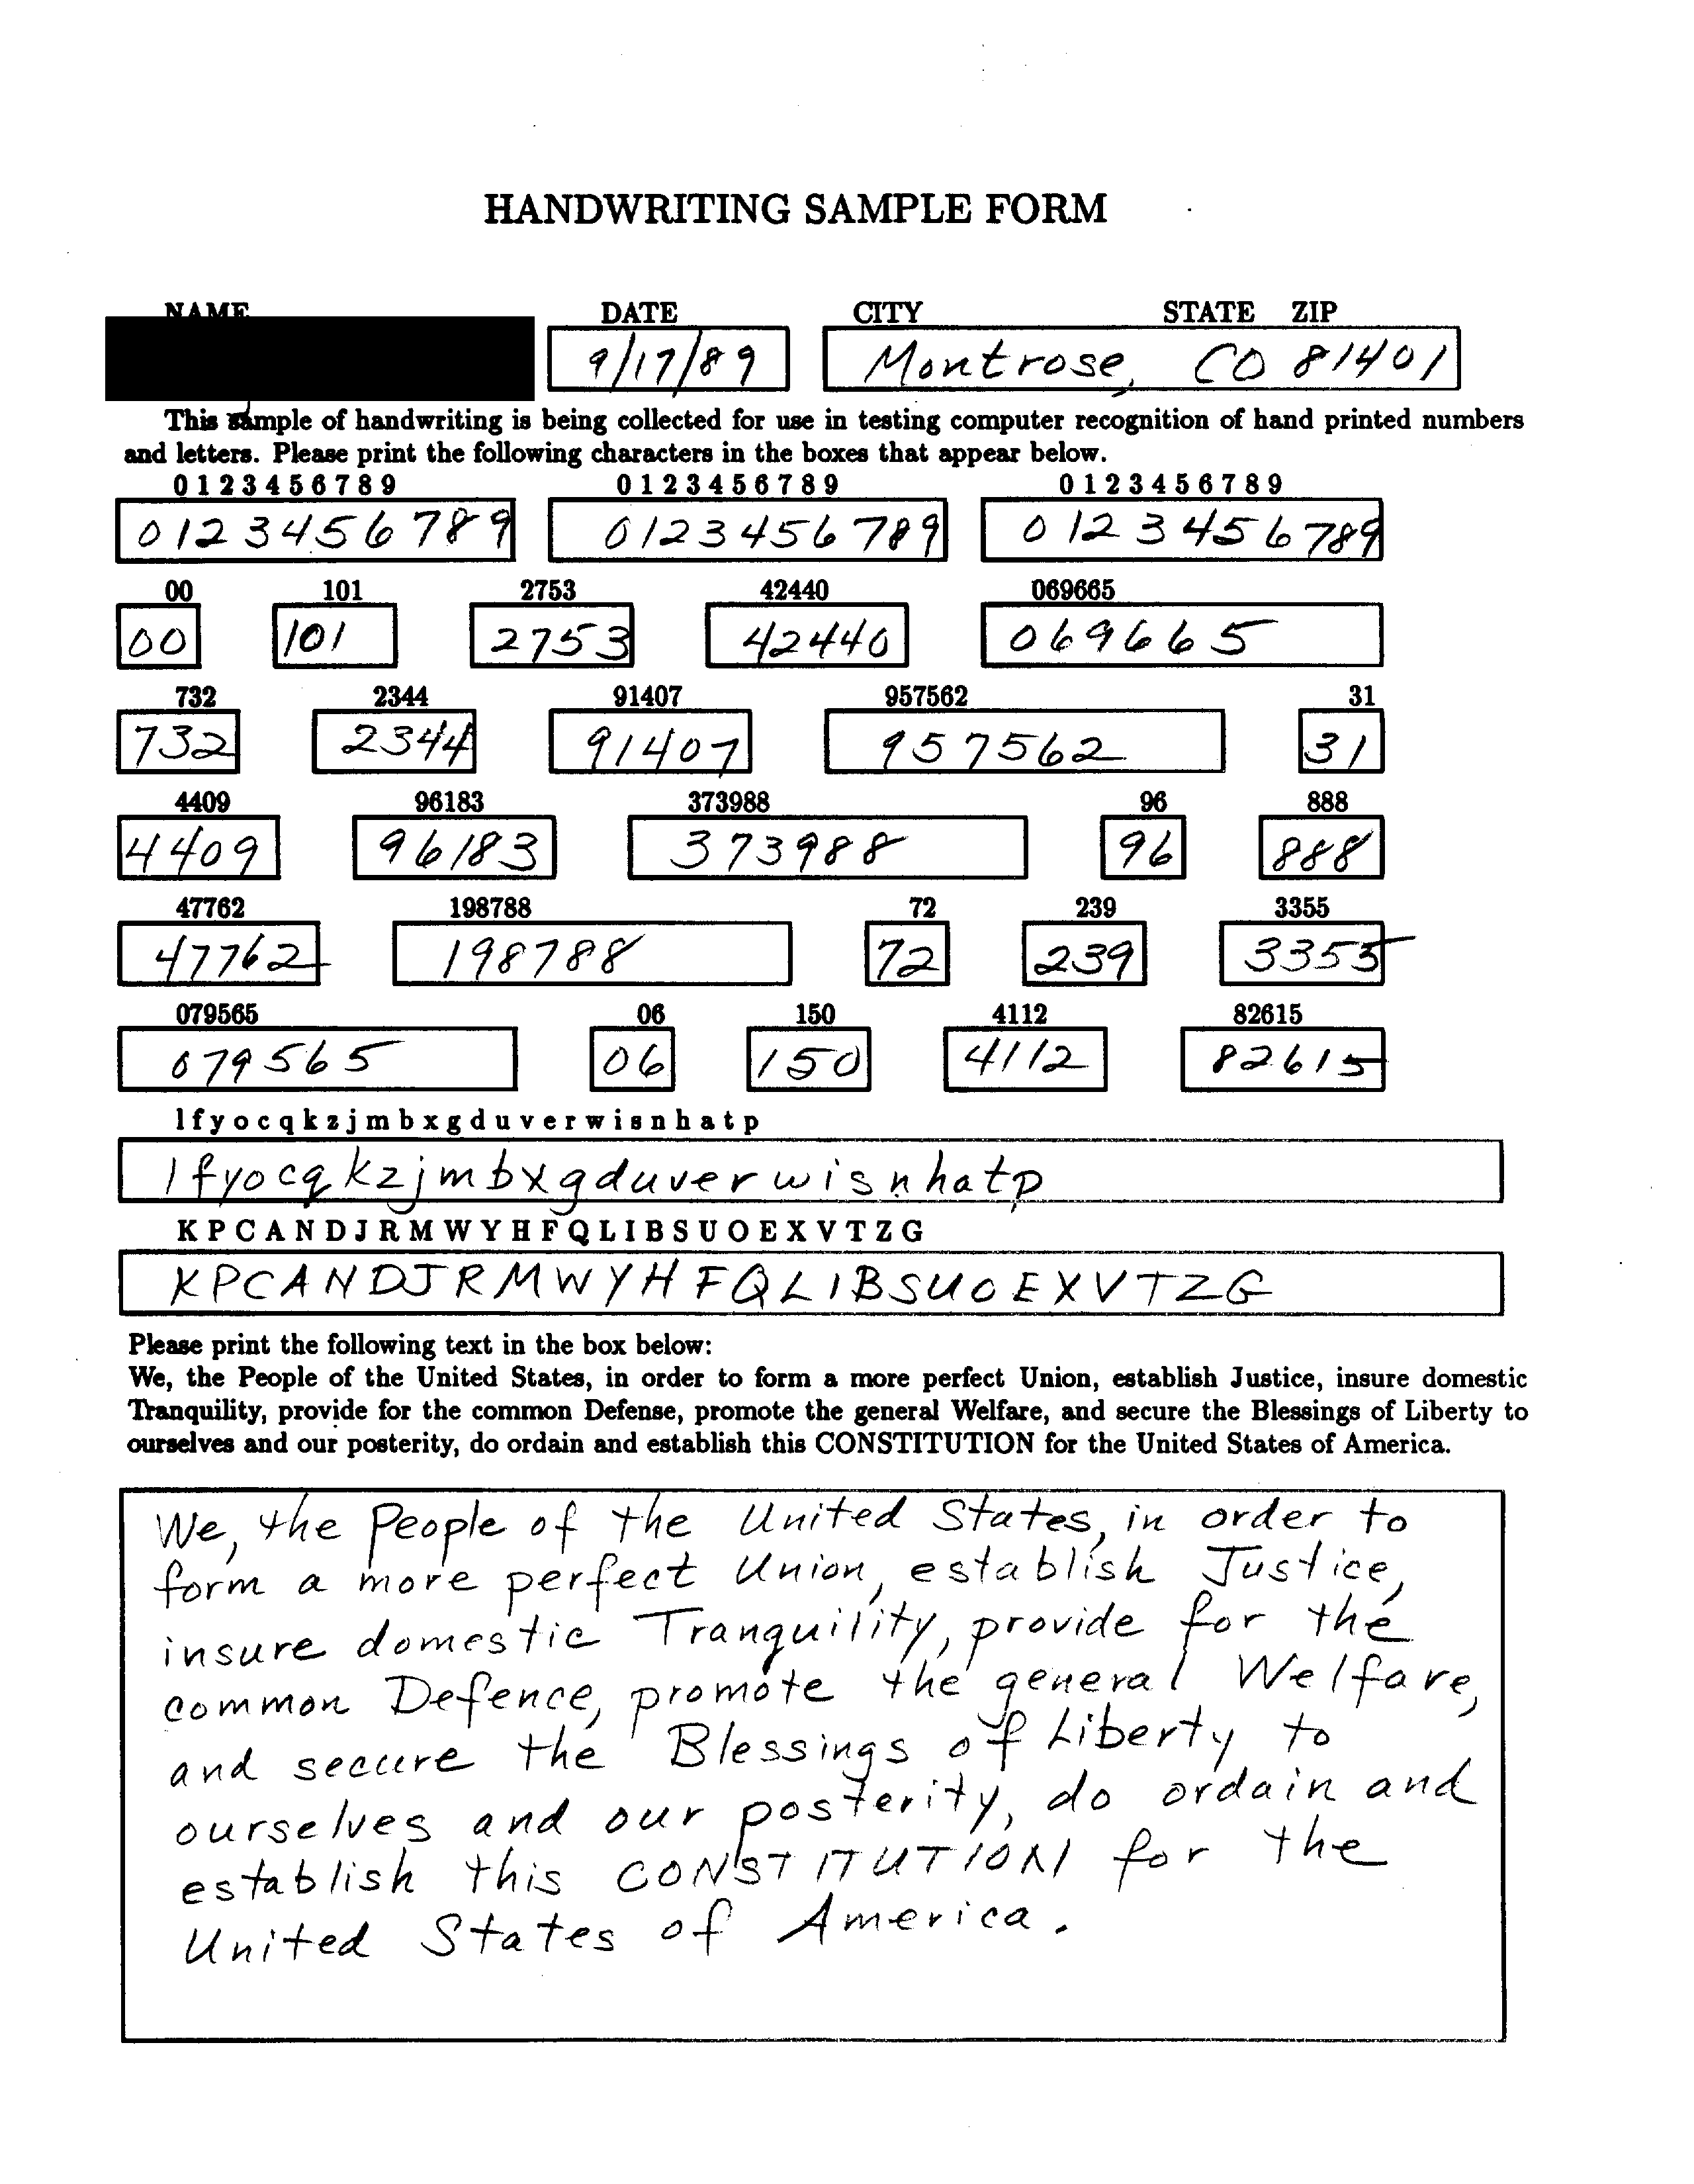 HANDWRITING SAMPLE FORM
NAME DATE CITY STATE ZIP
9/17/89 Montrose, CO 81401
This sample of handwriting is being collected for use in testing computer recognition of hand printed numbers
and letters. Please print the following characters in the boxes that appear below.
0 1 2 3 4 5 6 7 8 9 0 1 2 3 4 5 6 7 8 9 0 1 2 3 4 5 6 7 8 9
0123456789 0123456789 0123456789
00 101 2753 42440 069665
00 101 2753 42440 069665
732 2344 91407 957562 31
732 2344 91407 957562 31
4409 96183 373988 96 888
4409 96183 373988 96 888
47762 198788 72 239 3355
47762 198788 72 239 3355
079565 06 150 4112 82615
079565 06 150 4112 82615
l f y o c q k z j m b x g d u v e r w i s n h a t p
l f y o c q k z j m b x g d u v e r w i s n h a t p
K P C A N D J R M W Y H F Q L I B S U O E X V T Z G
K P C A N D J R M W Y H F Q L I B S U O E X V T Z G
Please print the following text in the box below:
We, the People of the United States, in order to form a more perfect Union, establish Justice, insure domestic
Tranquility, provide for the common Defense, promote the general Welfare, and secure the Blessings of Liberty to
ourselves and our posterity, do ordain and establish this CONSTITUTION for the United States of America.
We, the People of the United States, in order to
form a more perfect Union, establish Justice,
insure domestic Tranquility, provide for the
common Defence, promote the general Welfare,
and secure the Blessings of Liberty to
ourselves and our posterity, do ordain and
establish this CONSTITUTION for the
United States of America.